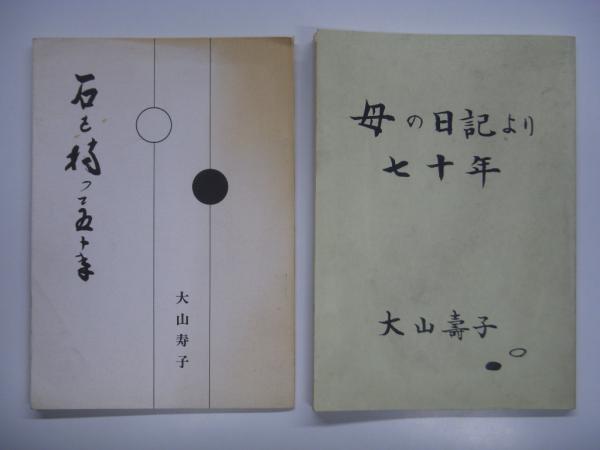 石を持つて五十年
大山寿子
母の日記より
七十年
大山壽子